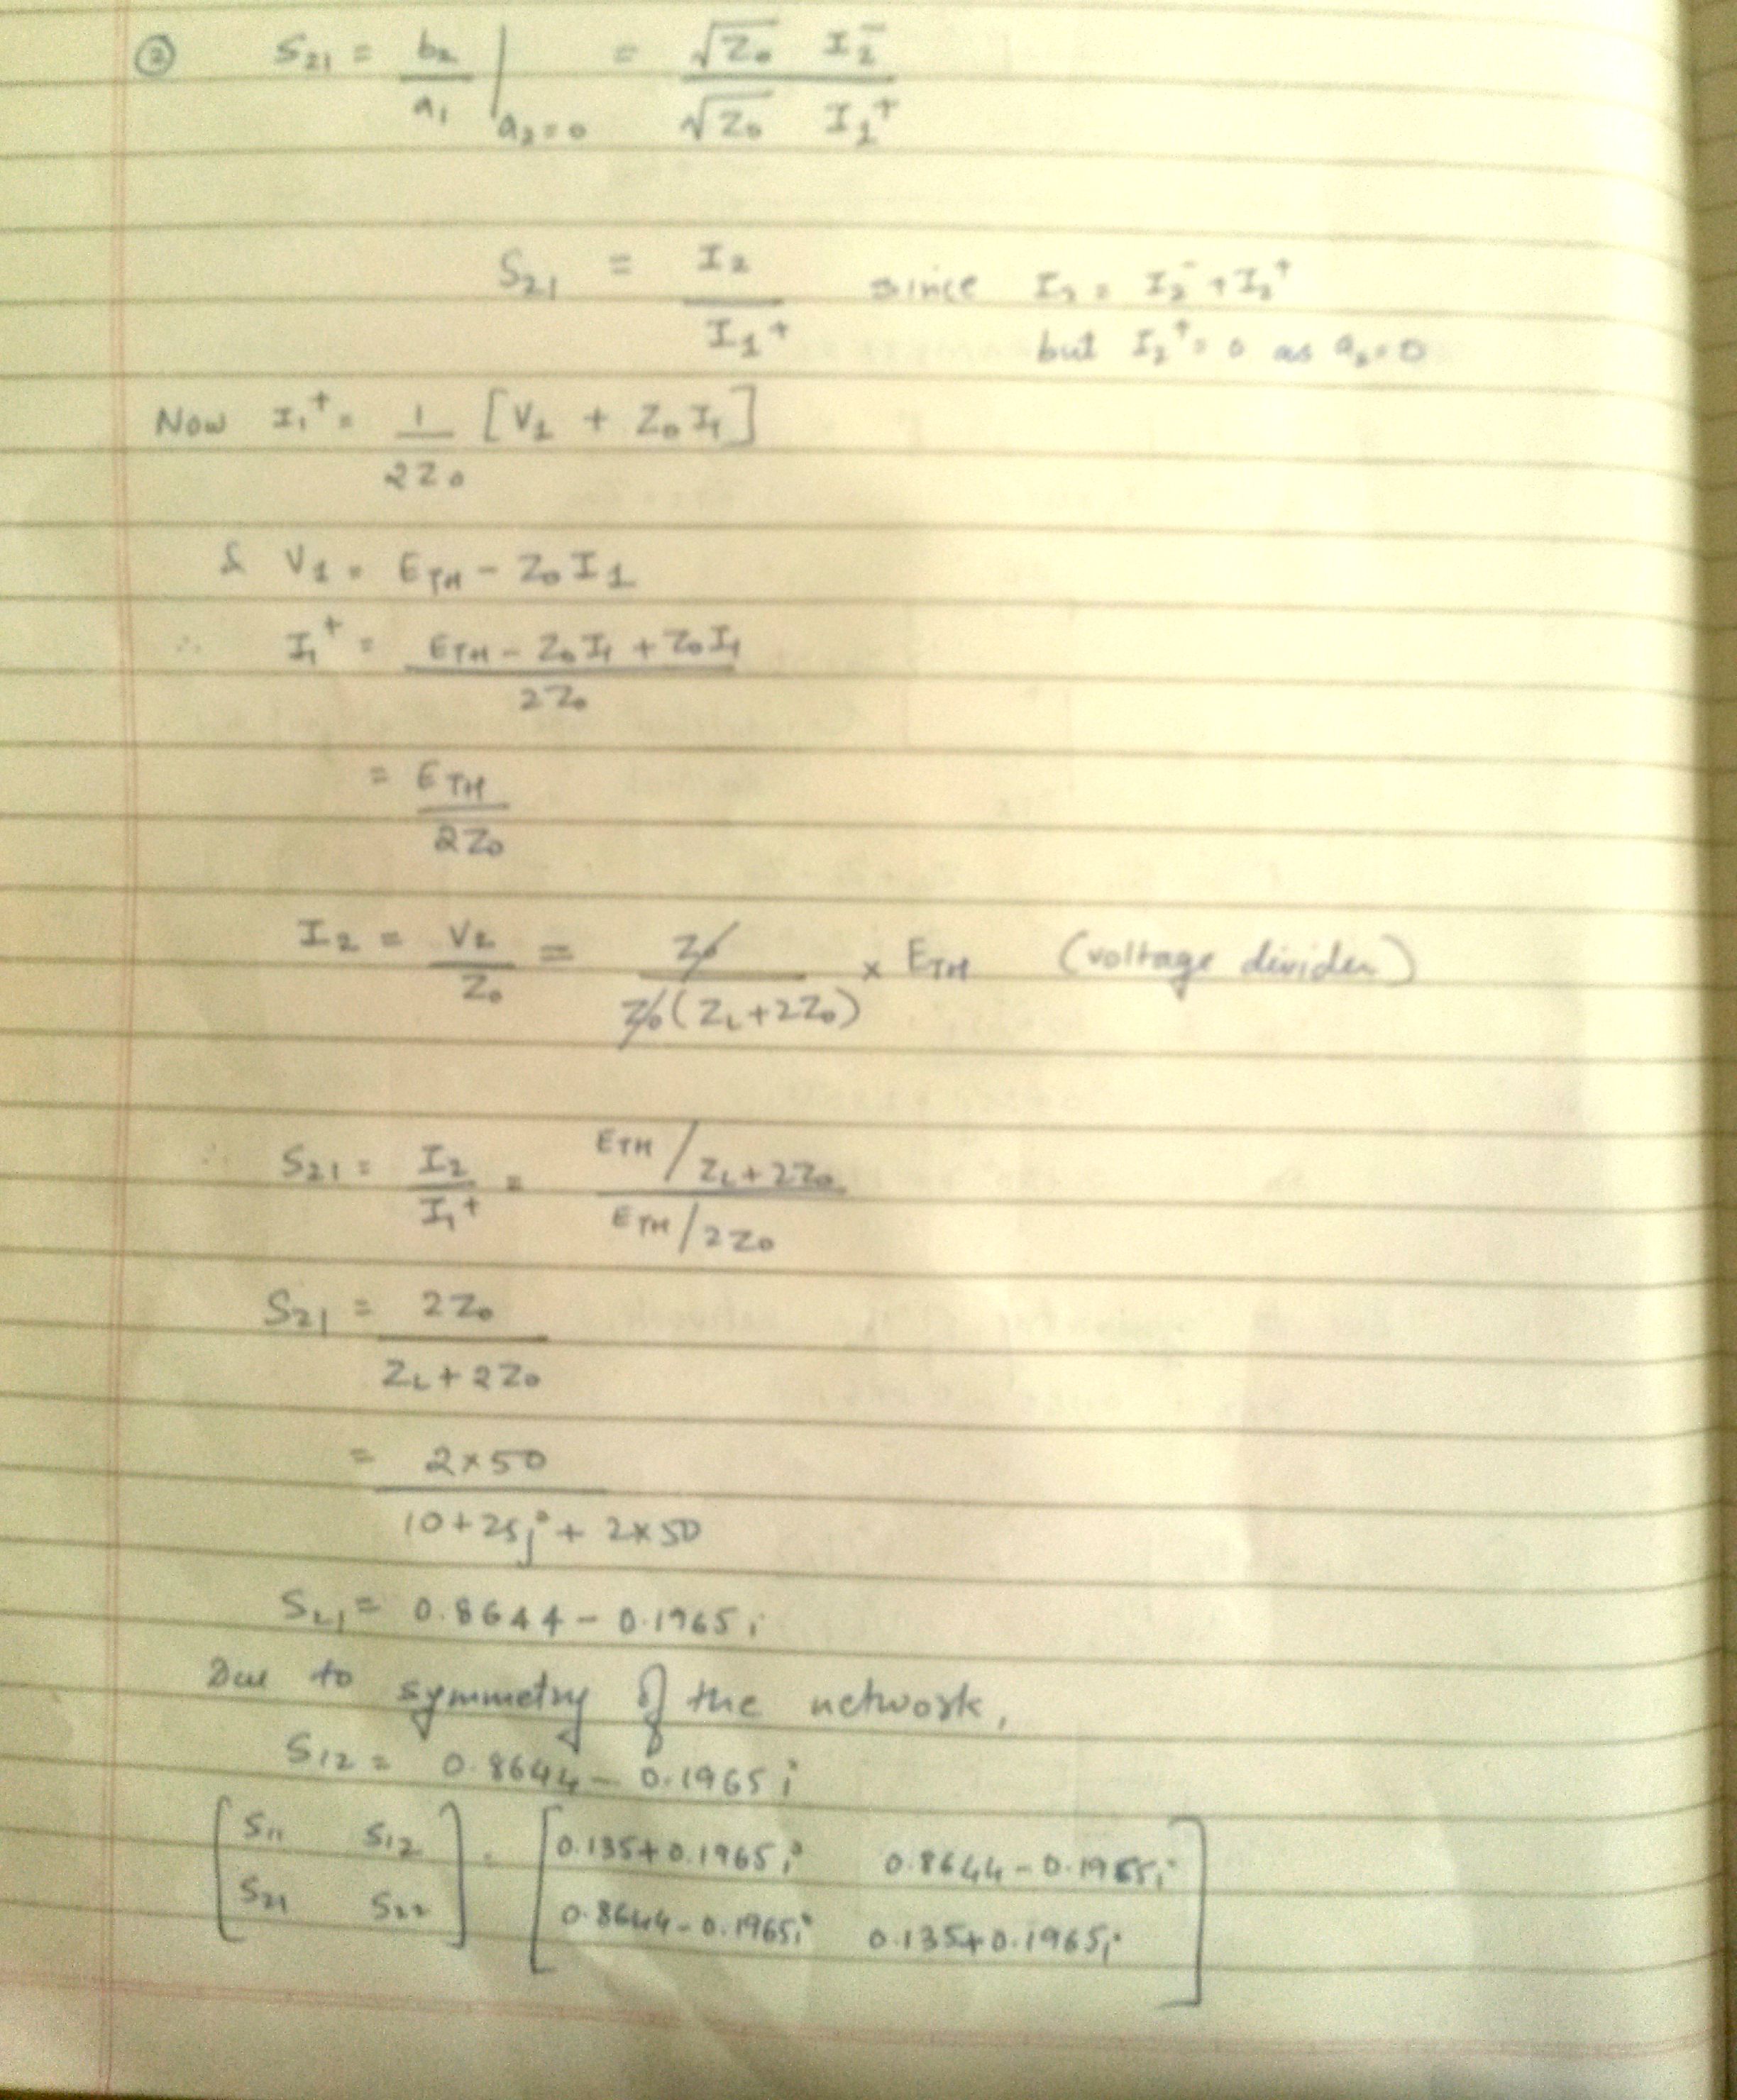 ② S₂₁ = b₂/a₁ |a₂=0 = √Z₀ I₂⁻ / √Z₀ I₁⁺
S₂₁ = I₂/I₁⁺ since I₂ = I₂⁻ + I₂⁺
but I₂⁺ = 0 as a₂=0
Now I₁⁺ = 1/2Z₀ [V₁ + Z₀I₁]
& V₁ = E_TH - Z₀I₁
∴ I₁⁺ = E_TH - Z₀I₁ + Z₀I₁ / 2Z₀
= E_TH / 2Z₀
I₂ = V₂/Z₀ = Z₀ / Z₀(Z_L+2Z₀) × E_TH (voltage divider)
∴ S₂₁ = I₂/I₁⁺ = E_TH/Z_L+2Z₀ / E_TH/2Z₀
S₂₁ = 2Z₀ / Z_L+2Z₀
= 2×50 / 10+25j + 2×50
S₂₁ = 0.8644 - 0.1965i
Due to symmetry of the network,
S₁₂ = 0.8644 - 0.1965i
[S₁₁ S₁₂] = [0.135+0.1965i 0.8644-0.1965i]
[S₂₁ S₂₂] [0.8644-0.1965i 0.135+0.1965i]